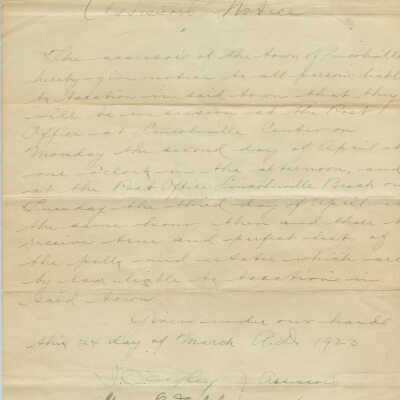 Assessors Notice
The assessors of the town of Lincolnville
hereby give notice to all persons liable
to taxation in said town that they
will be in session at the Post
Office at Lincolnville Center on
Monday the second day of April at
one o'clock in the afternoon, and
at the Post Office Lincolnville Beach on
Tuesday the third day of April at
the same hour then and there to
receive true and perfect lists of
the polls and estates which are
by law liable to taxation in
said town
Given under our hands
this 24 day of March A.D. 1923
Assessors